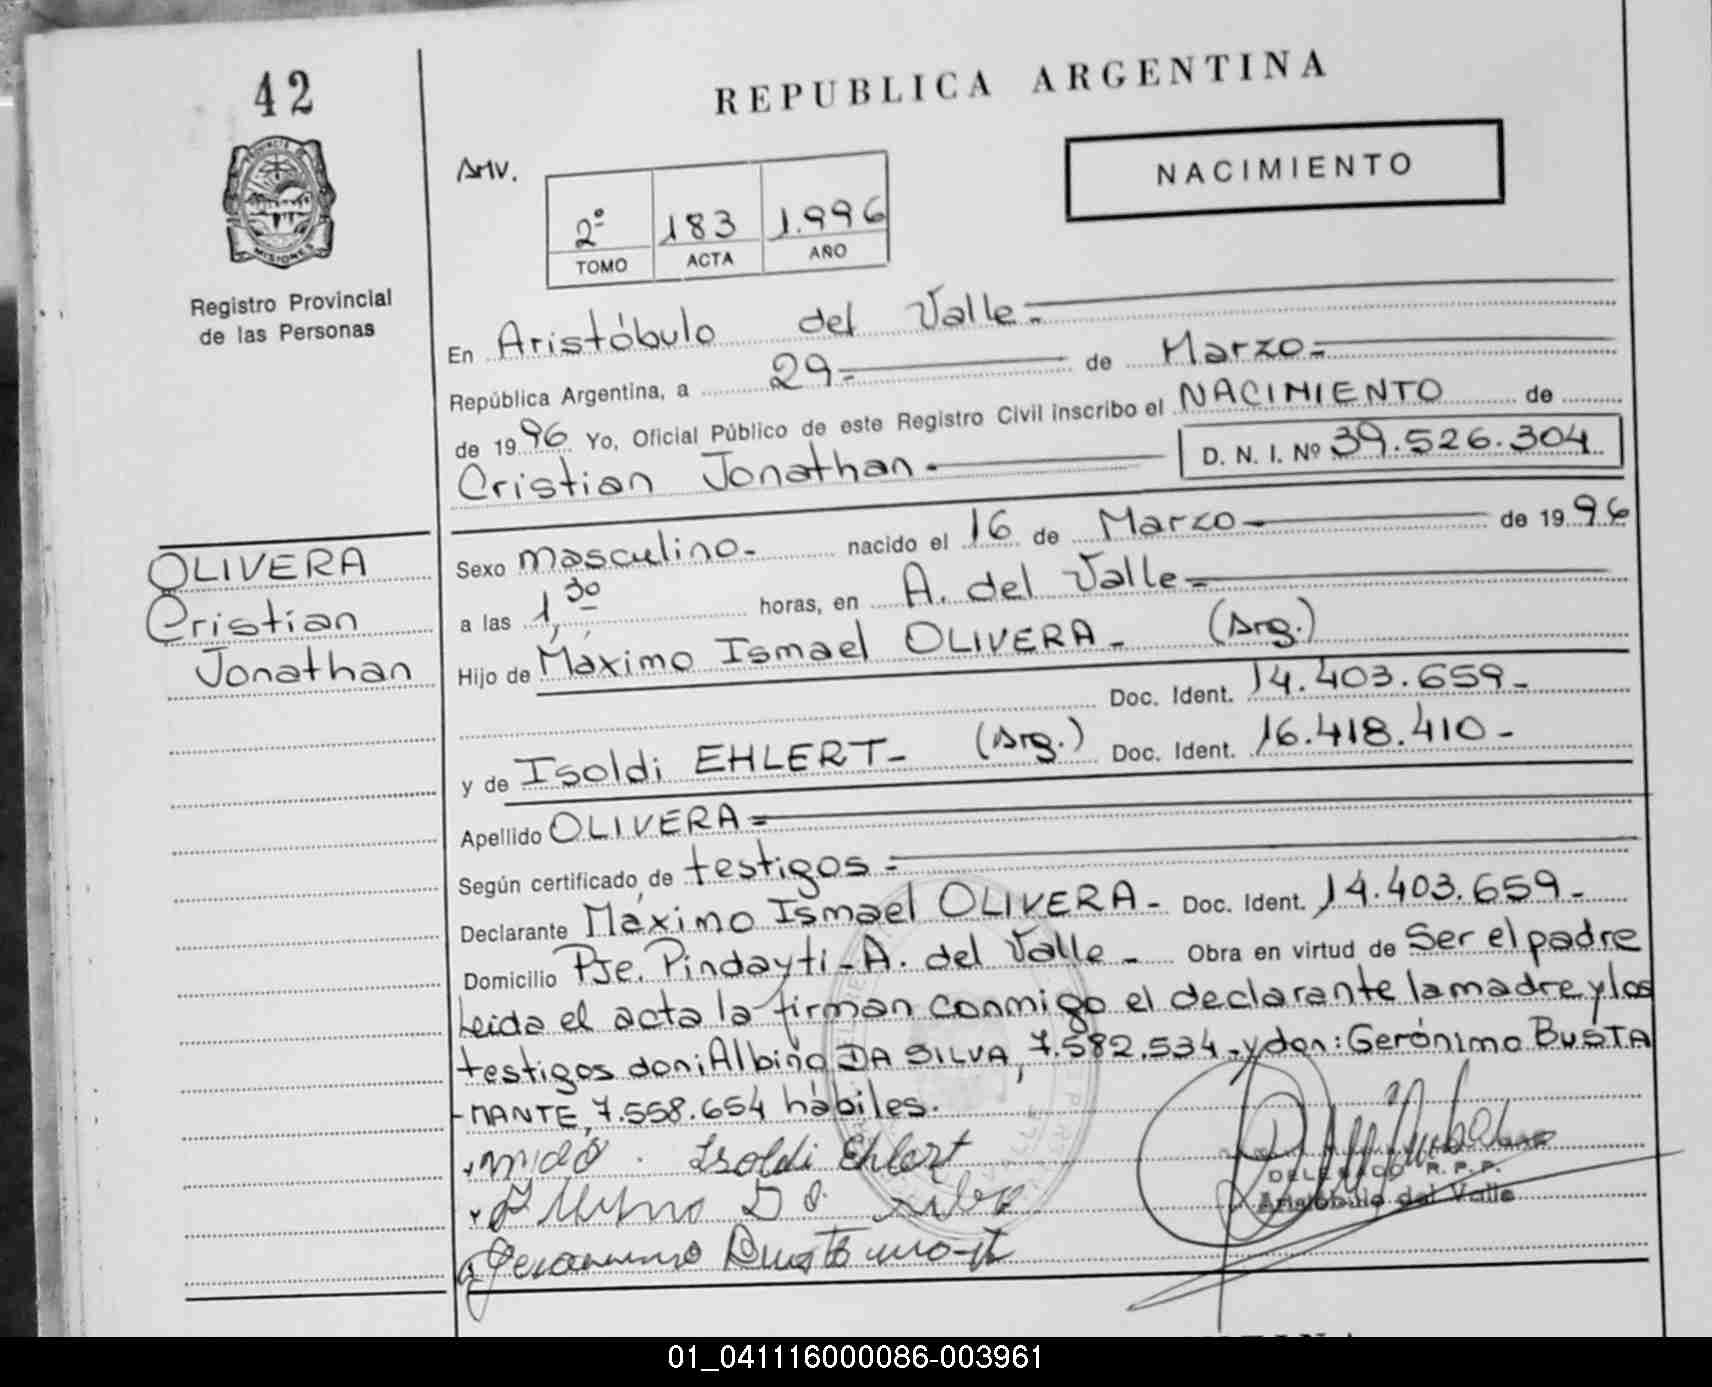 42
REPUBLICA ARGENTINA
PROVINCIA DE
MISIONES
Registro Provincial
de las Personas
AMV.
2º 183 1.996
TOMO ACTA AÑO
NACIMIENTO
En Aristóbulo del Valle.=
República Argentina, a 29.- de Marzo.=
de 1996 Yo, Oficial Público de este Registro Civil inscribo el NACIMIENTO de
Cristian Jonathan.-
D. N. I. Nº 39.526.304
OLIVERA
Cristian
Jonathan
Sexo masculino.- nacido el 16 de Marzo.- de 1996
a las 1,30 horas, en A. del Valle.=
Hijo de Máximo Ismael OLIVERA.- (Arg.)
Doc. Ident. 14.403.659.-
y de Isoldi EHLERT.- (Arg.) Doc. Ident. 16.418.410.-
Apellido OLIVERA.=
Según certificado de testigos.=
Declarante Máximo Ismael OLIVERA.- Doc. Ident. 14.403.659.-
Domicilio Pje. Pindayti - A. del Valle.- Obra en virtud de Ser el padre
Leida el acta la firman conmigo el declarante la madre y los
testigos don: Albino DA SILVA, 7.582.534.- y don: Gerónimo BUSTA
-MANTE, 7.558.654 hábiles.
Isoldi Ehlert
DELEGADO R.P.P.
Aristóbulo del Valle
01_041116000086-003961